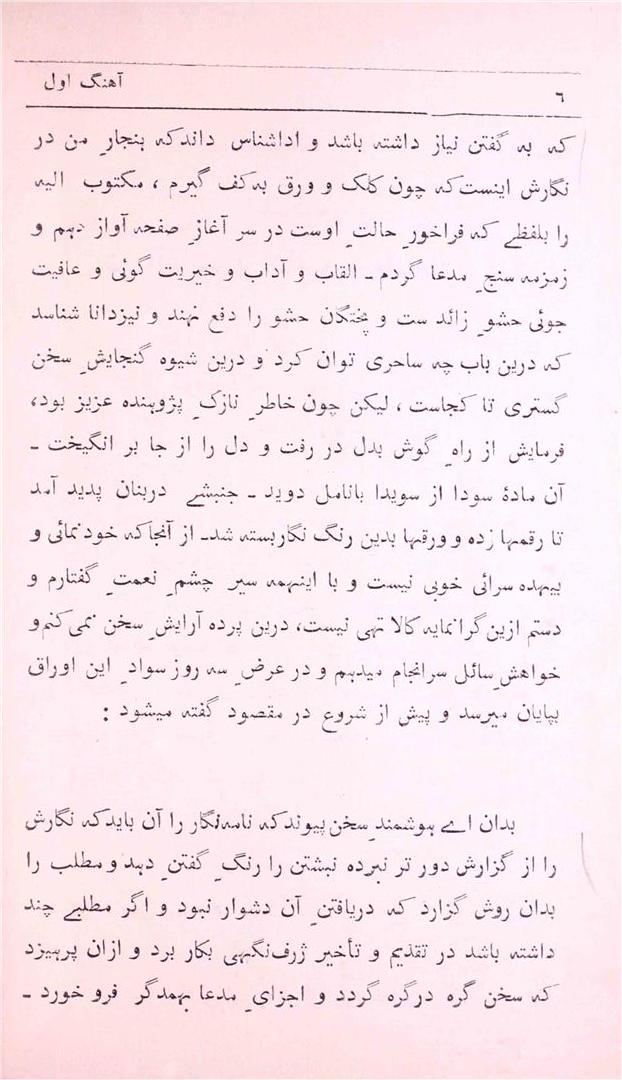 آهنگ اول
٦
که به گفتن نیاز داشته باشد و اداشناس داند که ہنجارِ من در
نگارش اینست که چون کلک و ورق به کف گیرم ، مکتوب الیه
را بلفظے که فراخورِ حالتِ اوست در سر آغازِ صفحه آواز دہم و
زمزمه سنجِ مدعا گردم ـ القاب و آداب و خیریت گوئی و عافیت
جوئی حشوِ زائد ست و پختگان حشو را دفع نہند و نیز دانا شناسد
که درین باب چه ساحری توان کرد و درین شیوه گنجایشِ سخن
گستری تا کجاست ، لیکن چون خاطرِ نازکِ پژوہنده عزیز بود،
فرمایش از راهِ گوش بدل در رفت و دل را از جا بر انگیخت ـ
آن مادۂ سودا از سویدا بانامل دوید ـ جنبشے دربنان پدید آمد
تا رقمہا زده و ورقہا بدین رنگ نگاربسته شدـ از آنجا که خود نمائی و
بیہده سرائی خوبی نیست و با اینہمه سیر چشمِ نعمتِ گفتارم و
دستم ازین گرانمایه کالا تہی نیست، درین پرده آرایشِ سخن نمی کنم و
خواہشِ سائل سرانجام میدہم و در عرضِ سه روز سوادِ این اوراق
بپایان میرسد و پیش از شروع در مقصود گفته میشود :
بدان اے ہوشمندِ سخن پیوند که نامه نگار را آن باید که نگارش
را از گزارش دور تر نبرده نبشتن را رنگِ گفتن دہد و مطلب را
بدان روش گزارد که دریافتنِ آن دشوار نبود و اگر مطلبے چند
داشته باشد در تقدیم و تأخیر ژرف نگہی بکار برد و ازان پرہیزد
که سخن گره درگره گردد و اجزایِ مدعا بہمدگر فرو خورد ـ